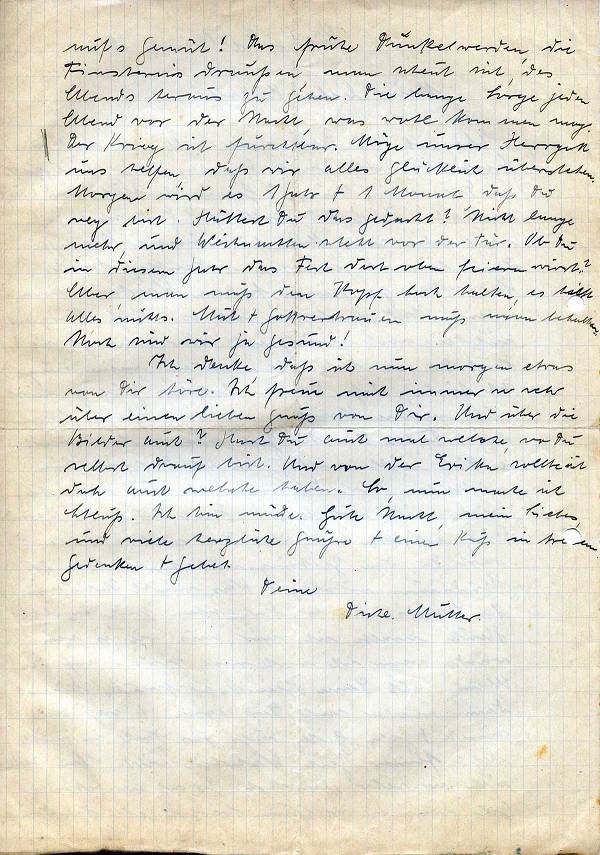 aufs Gemüt! Das frühe Dunkelwerden, die
Finsternis draußen man scheut sich, des
Abends heraus zu gehen. Die bange Sorge jeden
Abend vor der Nacht, was wohl kommen mag.
Der Krieg ist furchtbar. Möge unser Herrgott
uns helfen, daß wir alles glücklich überstehen.
Morgen wird es 1 Jahr + 1 Monat daß Du
weg bist. Hättest Du das gedacht? Nicht lange
mehr, und Weihnachten steht vor der Tür. Ob Du
in diesem Jahr das Fest dort oben feiern wirst?
Aber, man muß den Kopf hoch halten, es hilft
alles nichts. Mut + Gottvertrauen muß man behalten.
Noch sind wir ja gesund!
Ich denke, daß ich nun morgen etwas
von Dir höre. Ich freue mich immer so sehr
über einen lieben Gruß von Dir. Und über die
Bilder auch? Hast Du auch mal welche, wo Du
selbst drauf bist. Und von der Erika, wollte ich
doch auch welche haben. So, nun mache ich
Schluß. Ich bin müde. Gute Nacht, mein Liebes,
und viele herzliche Grüße + einen Kuß in treuem
Gedenken + Gebet.
Deine
Mutter.